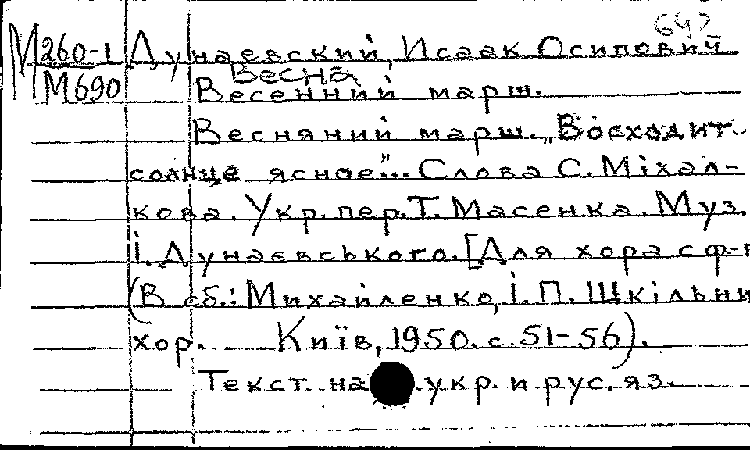 647
М260-1 Дунаевский, Исаак Осипович
Весна
М690 Весенний марш.
Весняний марш. „Восходит
солнце ясное"... Слова С. Міхал-
кова. Укр. пер. Т. Масенка. Муз.
І. Дунаєвського. [Для хора с ф-п
(В сб.: Михайленко, І. П. Шкільни
хор. Київ, 1950. с 51-56).
Текст на укр. и рус. яз.